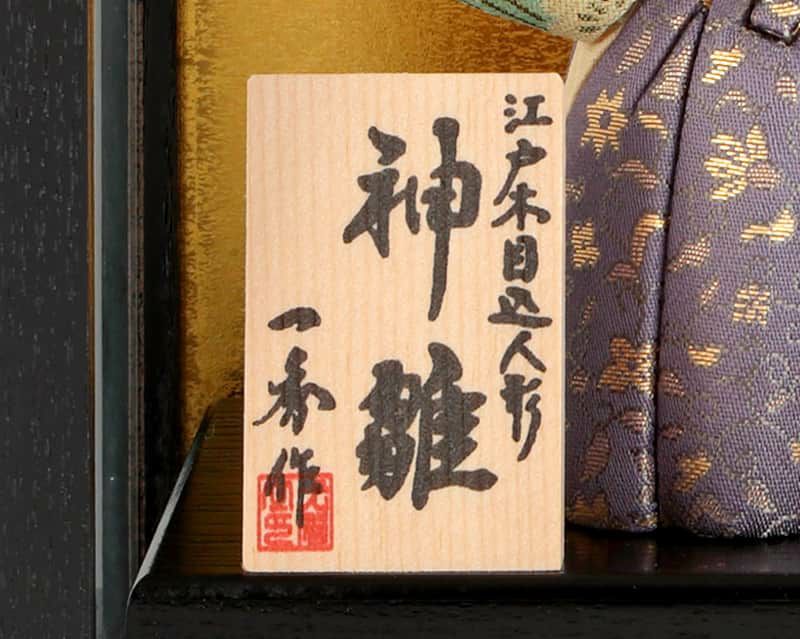 江戸木目込人形
神雛
一秀作